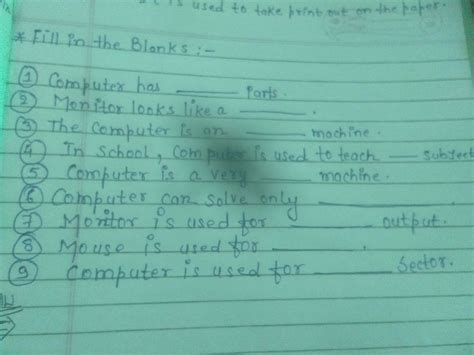 is used to take print out on the paper.
* Fill in the Blanks :-
① Computer has ______ Parts.
② Monitor looks like a ______.
③ The Computer is an ______ machine.
④ In School, Computer is used to teach ___ subject
⑤ Computer is a very ______ machine.
⑥ Computer can solve only ______.
⑦ Monitor is used for ______ output.
⑧ Mouse is used for ______.
⑨ Computer is used for ______ Sector.